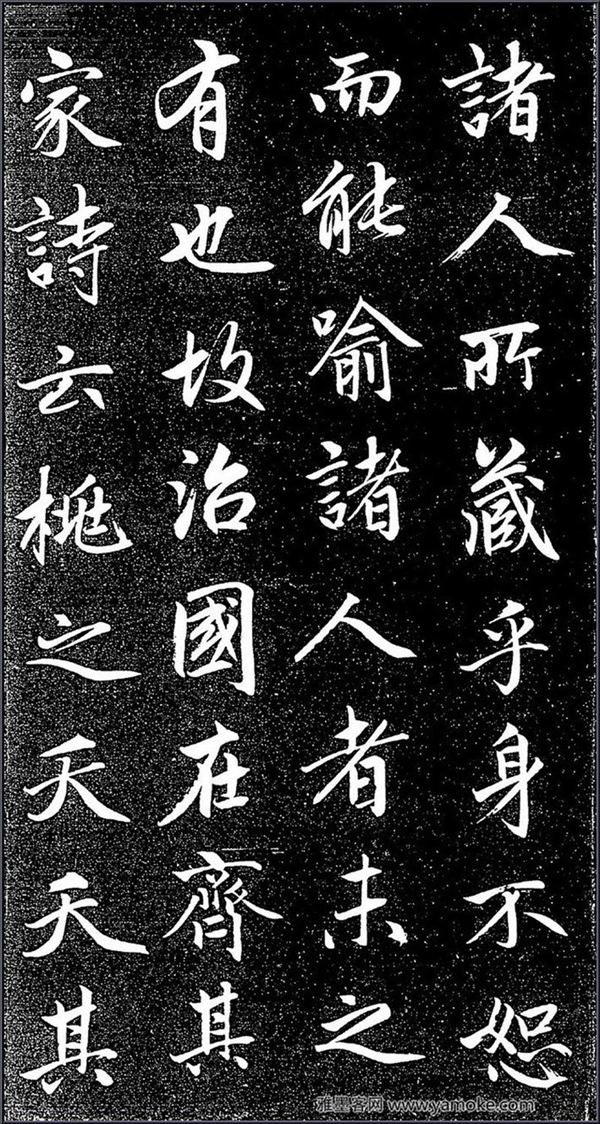 諸人所藏乎身不恕
而能喻諸人者未之
有也故治國在齊其
家詩云桃之夭夭其
雅墨客网 www.yamoke.com